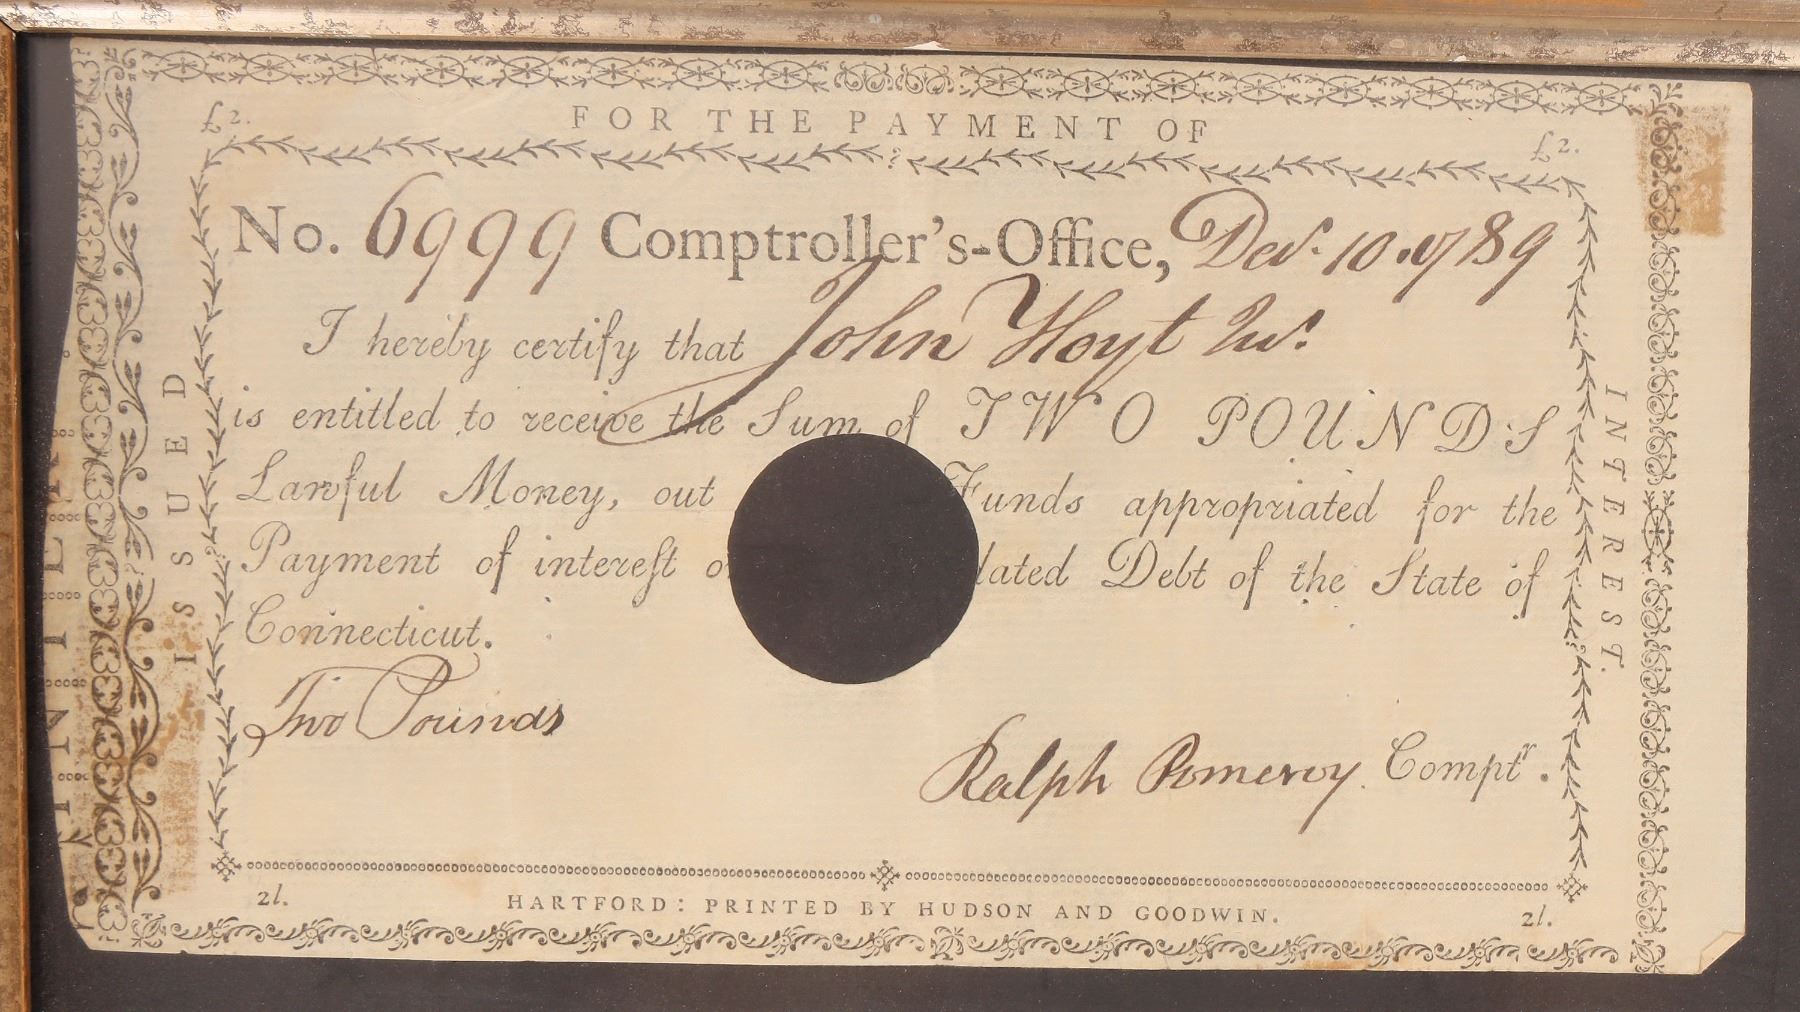 FOR THE PAYMENT OF
£2.
£2.
ISSUED
INTEREST.
No. 6999 Comptroller's-Office, Decr. 10. 1789
I hereby certify that John Hoyt Junr.
is entitled to receive the Sum of TWO POUNDS
Lawful Money, out Funds appropriated for the
Payment of interest o lated Debt of the State of
Connecticut.
Two Pounds
Ralph Pomeroy Comptr.
2l.
HARTFORD: PRINTED BY HUDSON AND GOODWIN.
2l.